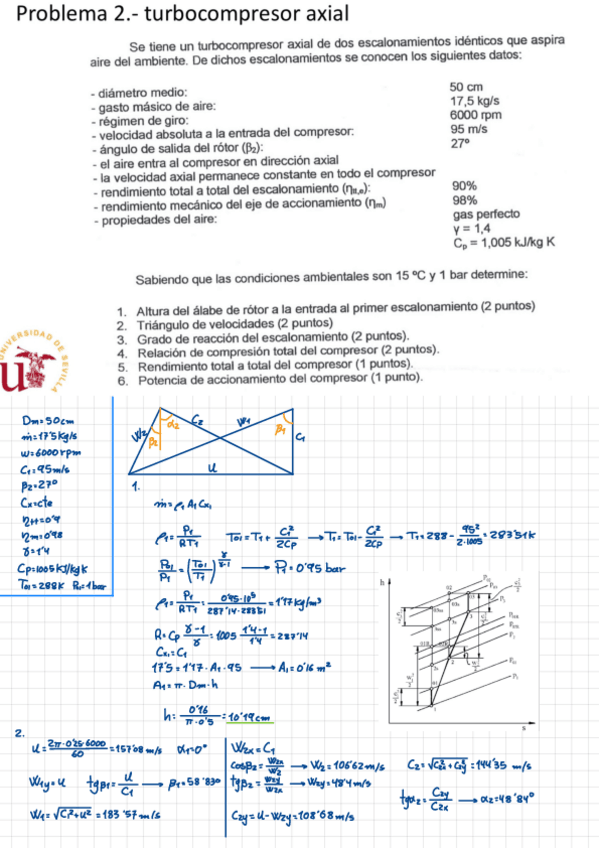 Problema 2.- turbocompresor axial
Se tiene un turbocompresor axial de dos escalonamientos idénticos que aspira
aire del ambiente. De dichos escalonamientos se conocen los siguientes datos:
- diámetro medio: 50 cm
- gasto másico de aire: 17,5 kg/s
- régimen de giro: 6000 rpm
- velocidad absoluta a la entrada del compresor: 95 m/s
- ángulo de salida del rótor (β₂): 27º
- el aire entra al compresor en dirección axial
- la velocidad axial permanece constante en todo el compresor
- rendimiento total a total del escalonamiento (ηtt,e): 90%
- rendimiento mecánico del eje de accionamiento (ηm) 98%
- propiedades del aire: gas perfecto
γ = 1,4
Cp = 1,005 kJ/kg K
Sabiendo que las condiciones ambientales son 15 ºC y 1 bar determine:
1. Altura del álabe de rótor a la entrada al primer escalonamiento (2 puntos)
2. Triángulo de velocidades (2 puntos)
3. Grado de reacción del escalonamiento (2 puntos).
4. Relación de compresión total del compresor (2 puntos).
5. Rendimiento total a total del compresor (1 puntos).
6. Potencia de accionamiento del compresor (1 punto).
UNIVERSIDAD DE SEVILLA
Dm=50cm
ṁ=17'5kg/s
w=6000rpm
C₁=95m/s
β₂=27º
Cx=cte
ηtt=0'9
ηm=0'98
γ=1'4
Cp=1005kJ/kgK
T01=288K P₀=1bar
W₂ β₂ α₂ C₂ W₁ β₁ C₁
u
1.
ṁ=ρ₁A₁Cx₁
ρ₁=P₁/RT₁ T01=T₁+C₁²/2Cp → T₁=T01-C₁²/2Cp → T₁=288-95²/2·1005=283'51K
P01/P₁=(T01/T₁)^(γ/γ-1) → P₁=0'95 bar
ρ₁=P₁/RT₁=0'95·10⁵/287'14·283'51=1'17kg/m³
R=Cp γ-1/γ=1005 1'4-1/1'4=287'14
Cx₁=C₁
17'5=1'17·A₁·95 → A₁=0'16m²
A₁=π·Dm·h
h=0'16/π·0'5=10'19cm
h
s
2.
u=2π·0'25·6000/60=157'08m/s α₁=0º
W1y=u tgβ₁=u/C₁ → β₁=58'83º
W₁=√C₁²+u²=183'57m/s
W2x=C₁
cosβ₂=W2x/W₂ → W₂=106'62m/s
tgβ₂=W2y/W2x → W2y=48'4m/s
C2y=u-W2y=108'68m/s
C₂=√C2x²+C2y²=144'35 m/s
tgα₂=C2y/C2x → α₂=48'84º